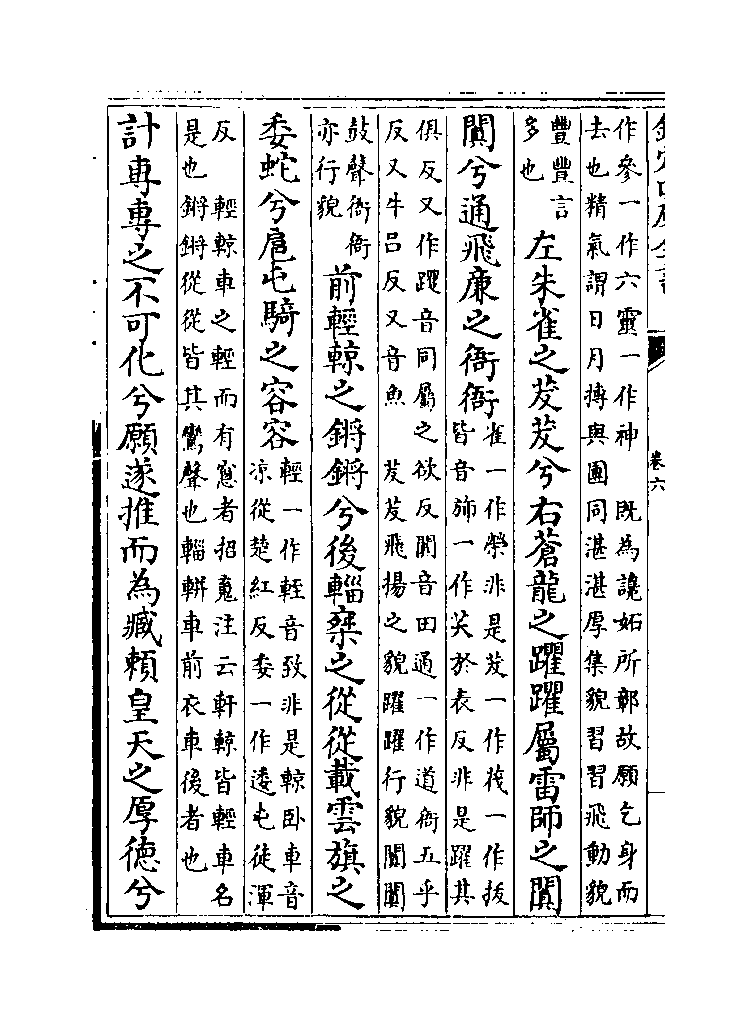 欽定四庫全書　卷六
作參一作六靈一作神　既為讒妬所鄣故願乞身而
去也精氣謂日月摶與團同湛湛厚集貌習習飛動貌
豐豐言
多也
左朱雀之茇茇兮右蒼龍之躍躍屬雷師之闐
闐兮通飛廉之衙衙
雀一作榮非是茇一作茷一作拔
皆音斾一作芺於表反非是躍其
俱反又作躣音同屬之欲反闐音田通一作道衙五乎
反又牛呂反又音魚　茇茇飛揚之貌躍躍行貌闐闐
鼓聲衙衙
亦行貌
前輕輬之鏘鏘兮後輜椉之從從載雲旗之
委蛇兮扈屯騎之容容
輕一作輊音致非是輬臥車音
涼從楚紅反委一作逶屯徒渾
反　輕輬車之輕而有窻者招䰟注云軒輬皆輕車名
是也鏘鏘從從皆其鸞聲也輜軿車前衣車後者也
計專專之不可化兮願遂推而為臧賴皇天之厚德兮